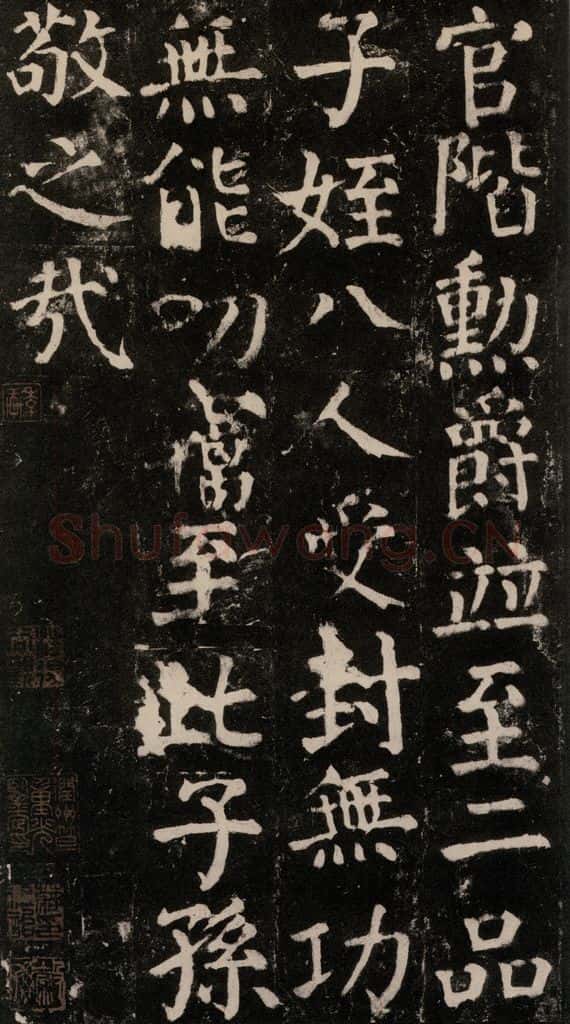 官階勳爵並至二品
子姪八人受封無功
無能叨當至此子孫
敬之哉
Shufawang.CN